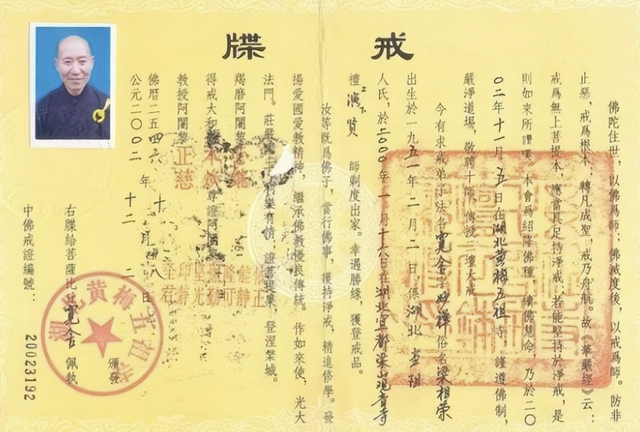 戒牒
佛陀住世,以佛爲師;佛滅度後,以戒爲師。防非
止惡,戒爲根本,轉凡成聖,戒乃舟航。故《華嚴經》云:
戒爲無上菩提本,應當具足持淨戒,若能堅持於淨戒,是
則如來所讚嘆。本會爲紹隆佛種,續佛慧命,乃於二〇
〇二年十一月五日在湖北黃梅五祖寺,謹遵佛制,
嚴淨道場,敬聘十師,傳授三壇大戒。
今有求戒弟子法名寬舍字妙禪俗名梁相榮
出生於一九五一年二月一日係湖北當陽
人氏,於二000年一月十六日在湖北宜都梁山观音寺
禮上演下賢師剃度出家。幸遇勝緣,獲登戒品。
汝等既爲佛子,當行佛事,護持淨戒,精進修學。發
揚愛國愛教精神,繼承佛教優良傳統。作如來使,光大
法門。莊嚴國土,利樂有情,證菩提果,登涅槃城。
得戒大和尚
羯磨阿闍黎
教授阿闍黎正慈
尊證阿闍黎
佛曆二五四六年十月廿八日
公元二〇〇二年十二月一日
右牒給菩薩比丘寬舍佩執
湖北黃梅五祖寺
頒發
中佛戒證編號:20023192